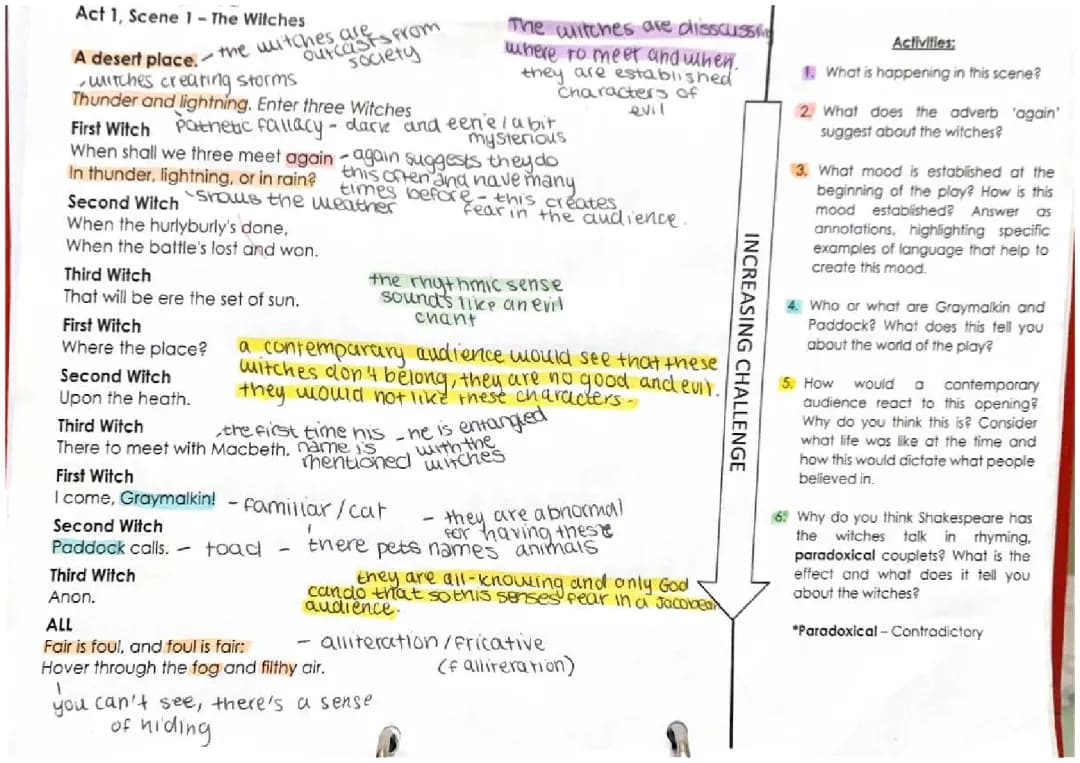 Act 1, Scene 1 – The Witches
A desert place. - the witches are outcasts from society
- witches creating storms
Thunder and lightning. Enter three Witches
Pathetic fallacy - dark and eerie / a bit mysterious
First Witch
When shall we three meet again - again suggests they do this often and have many times before - this creates fear in the audience.
In thunder, lightning, or in rain?
shows the weather
Second Witch
When the hurlyburly's done,
When the battle's lost and won.
Third Witch
That will be ere the set of sun.
the rhythmic sense
sounds like an evil
chant
First Witch
Where the place?
Second Witch
Upon the heath.
a contemparary audience would see that these
witches don't belong, they are no good and evil.
they would not like these characters -
Third Witch
There to meet with Macbeth.
the first time his name is mentioned
- he is entangled with the witches
First Witch
I come, Graymalkin! - familiar / cat
Second Witch
Paddock calls. - toad - there pets names
- they are abnormal
for having these
animals
Third Witch
Anon.
they are all-knowing and only God
can do that so this senses fear in a Jacobean
audience.
ALL
Fair is foul, and foul is fair: - alliteration / fricative
Hover through the fog and filthy air. (f alliteration)
you can't see, there's a sense
of hiding
The witches are disscussing
where to meet and when.
they are established
characters of
evil
INCREASING CHALLENGE
Activities:
1. What is happening in this scene?
2. What does the adverb 'again'
suggest about the witches?
3. What mood is established at the
beginning of the play? How is this
mood established? Answer as
annotations, highlighting specific
examples of language that help to
create this mood.
4. Who or what are Graymalkin and
Paddock? What does this tell you
about the world of the play?
5. How would a contemporary
audience react to this opening?
Why do you think this is? Consider
what life was like at the time and
how this would dictate what people
believed in.
6. Why do you think Shakespeare has
the witches talk in rhyming,
paradoxical couplets? What is the
effect and what does it tell you
about the witches?
*Paradoxical – Contradictory